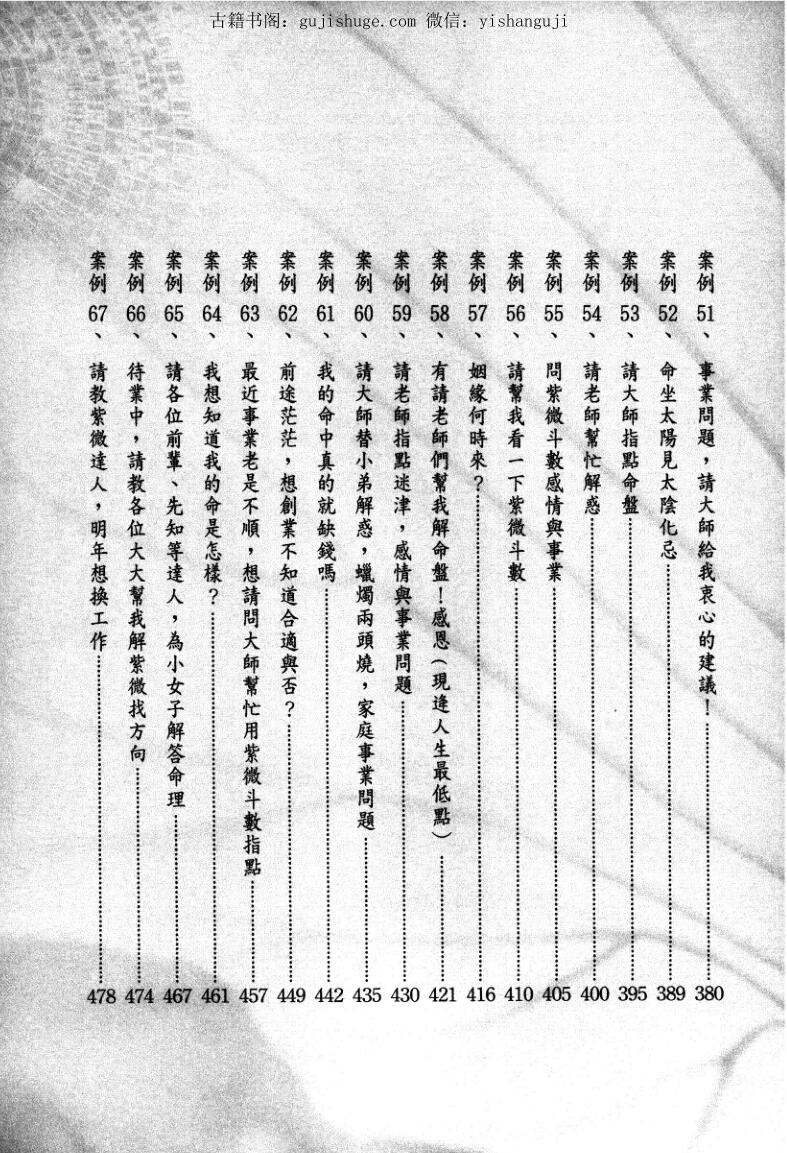 古籍书阁：gujishuge.com 微信：yishanguji
案例51、事業問題，請大師給我衷心的建議！……380
案例52、命坐太陽見太陰化忌……389
案例53、請大師指點命盤……395
案例54、請老師幫忙解惑……400
案例55、問紫微斗數感情與事業……405
案例56、請幫我看一下紫微斗數……410
案例57、姻緣何時來？……416
案例58、有請老師們幫我解命盤！感恩（現逢人生最低點）……421
案例59、請老師指點迷津，感情與事業問題……430
案例60、請大師替小弟解惑，蠟燭兩頭燒，家庭事業問題……435
案例61、我的命中真的就缺錢嗎……442
案例62、前途茫茫，想創業不知道合適與否？……449
案例63、最近事業老是不順，想請問大師幫忙用紫微斗數指點……457
案例64、我想知道我的命是怎樣？……461
案例65、請各位前輩、先知等達人，為小女子解答命理……467
案例66、待業中，請教各位大大幫我解紫微找方向……474
案例67、請教紫微達人，明年想換工作……478